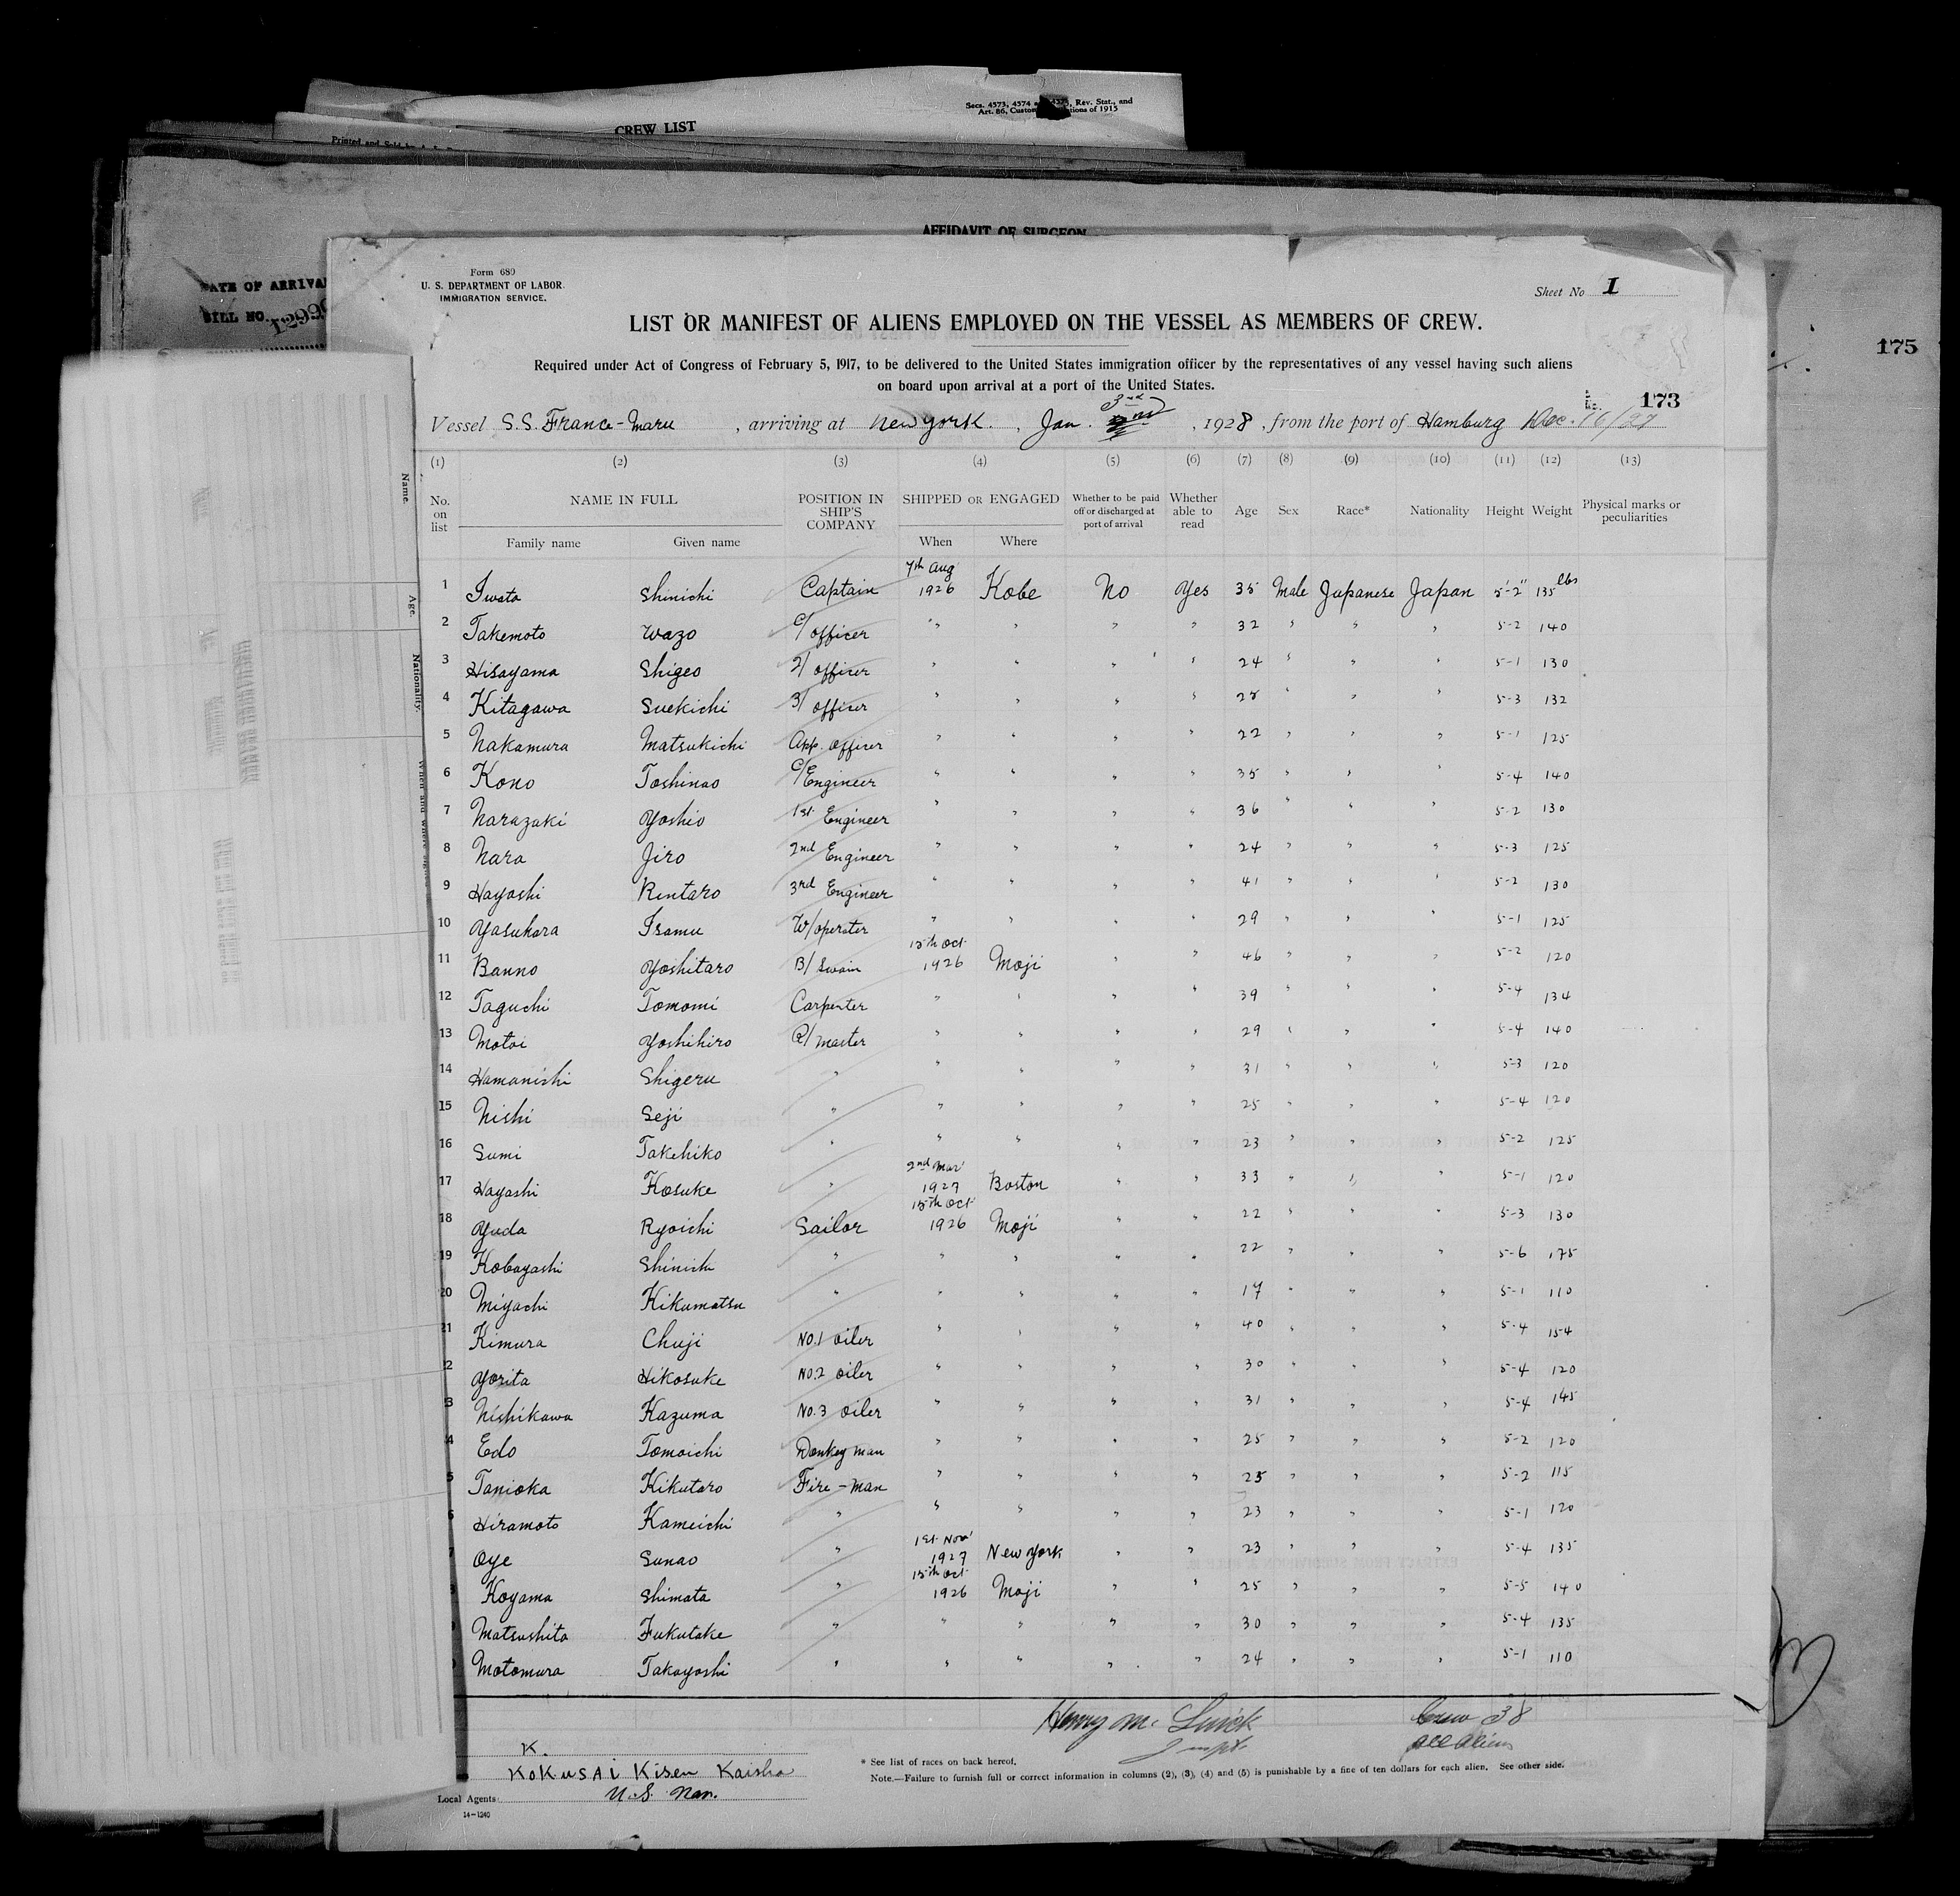 CREW LIST
Secs. 4573, 4574 a 4575, Rev. Stat., and
Art. 86, Custom tions of 1915
Printed and Sold by
AFFIDAVIT OF SURGEON
DATE OF ARRIVAL
BILL NO.
175
Form 680
U. S. DEPARTMENT OF LABOR
IMMIGRATION SERVICE.
Sheet No 1
LIST OR MANIFEST OF ALIENS EMPLOYED ON THE VESSEL AS MEMBERS OF CREW.
Required under Act of Congress of February 5, 1917, to be delivered to the United States immigration officer by the representatives of any vessel having such aliens
on board upon arrival at a port of the United States.
173
Vessel S.S. France-Maru, arriving at New York., Jan. 3rd, 1928, from the port of Hamburg Dec. 16/27
(1) (2) (3) (4) (5) (6) (7) (8) (9) (10) (11) (12) (13)
No. on list NAME IN FULL Family name Given name POSITION IN SHIP'S COMPANY SHIPPED OR ENGAGED When Where Whether to be paid off or discharged at port of arrival Whether able to read Age Sex Race* Nationality Height Weight Physical marks or peculiarities
1 Iwata Shinichi Captain 7th Aug 1926 Kobe No Yes 35 Male Japanese Japan 5'-2" 135 lbs
2 Takemoto Wazo C/officer " " " " 32 " " " 5-2 140
3 Hisayama Shigeo 2/officer " " " " 24 " " " 5-1 130
4 Kitagawa Suekichi 3/officer " " " " 28 " " " 5-3 132
5 Nakamura Matsukichi App. officer " " " " 22 " " " 5-1 125
6 Kono Toshinao C/Engineer " " " " 35 " " " 5-4 140
7 Narazaki Yoshio 1st Engineer " " " " 36 " " " 5-2 130
8 Nara Jiro 2nd Engineer " " " " 24 " " " 5-3 125
9 Hayashi Rintaro 3rd Engineer " " " " 41 " " " 5-2 130
10 Yasuhara Isamu W/operater " " " " 29 " " " 5-1 125
11 Banno Yoshitaro B/Swain 15th Oct 1926 Moji " " 46 " " " 5-2 120
12 Taguchi Tomomi Carpenter " " " " 39 " " " 5-4 134
13 Motoi Yoshihiro Q/master " " " " 29 " " " 5-4 140
14 Hamanishi Shigeru " " " " " 31 " " " 5-3 120
15 Nishi Seji " " " " " 25 " " " 5-4 120
16 Sumi Takehiko " " " " " 23 " " " 5-2 125
17 Hayashi Kosuke " 2nd Mar 1927 Boston " " 33 " " " 5-1 120
18 Yuda Ryoichi Sailor 15th Oct 1926 Moji " " 22 " " " 5-3 130
19 Kobayashi Shinichi " " " " " 22 " " " 5-6 175
20 Miyachi Kikumatsu " " " " " 17 " " " 5-1 110
21 Kimura Chuji No.1 oiler " " " " 40 " " " 5-4 154
2 Yorita Hikosuke No.2 oiler " " " " 30 " " " 5-4 120
3 Nishikawa Kazuma No.3 oiler " " " " 31 " " " 5-4 145
4 Edo Tomoichi Donkey man " " " " 25 " " " 5-2 120
5 Tanioka Kikutaro Fire-man " " " " 25 " " " 5-2 115
6 Hiramoto Kameichi " " " " " 23 " " " 5-1 120
7 Oye Sunao " 1st Nov 1927 New York " " 23 " " " 5-4 135
8 Koyama Shimata " 15th Oct 1926 Moji " " 25 " " " 5-5 140
Matsushita Fukutake " " " " " 30 " " " 5-4 135
Motomura Takayoshi " " " " " 24 " " " 5-1 110
Henry M.
Crew 38
all aliens
K.
KOKUSAI Kisen Kaisha
Local Agents
* See list of races on back hereof.
Note.—Failure to furnish full or correct information in columns (2), (3), (4) and (5) is punishable by a fine of ten dollars for each alien. See other side.
14-1240
Name.
Age.
Nationality.